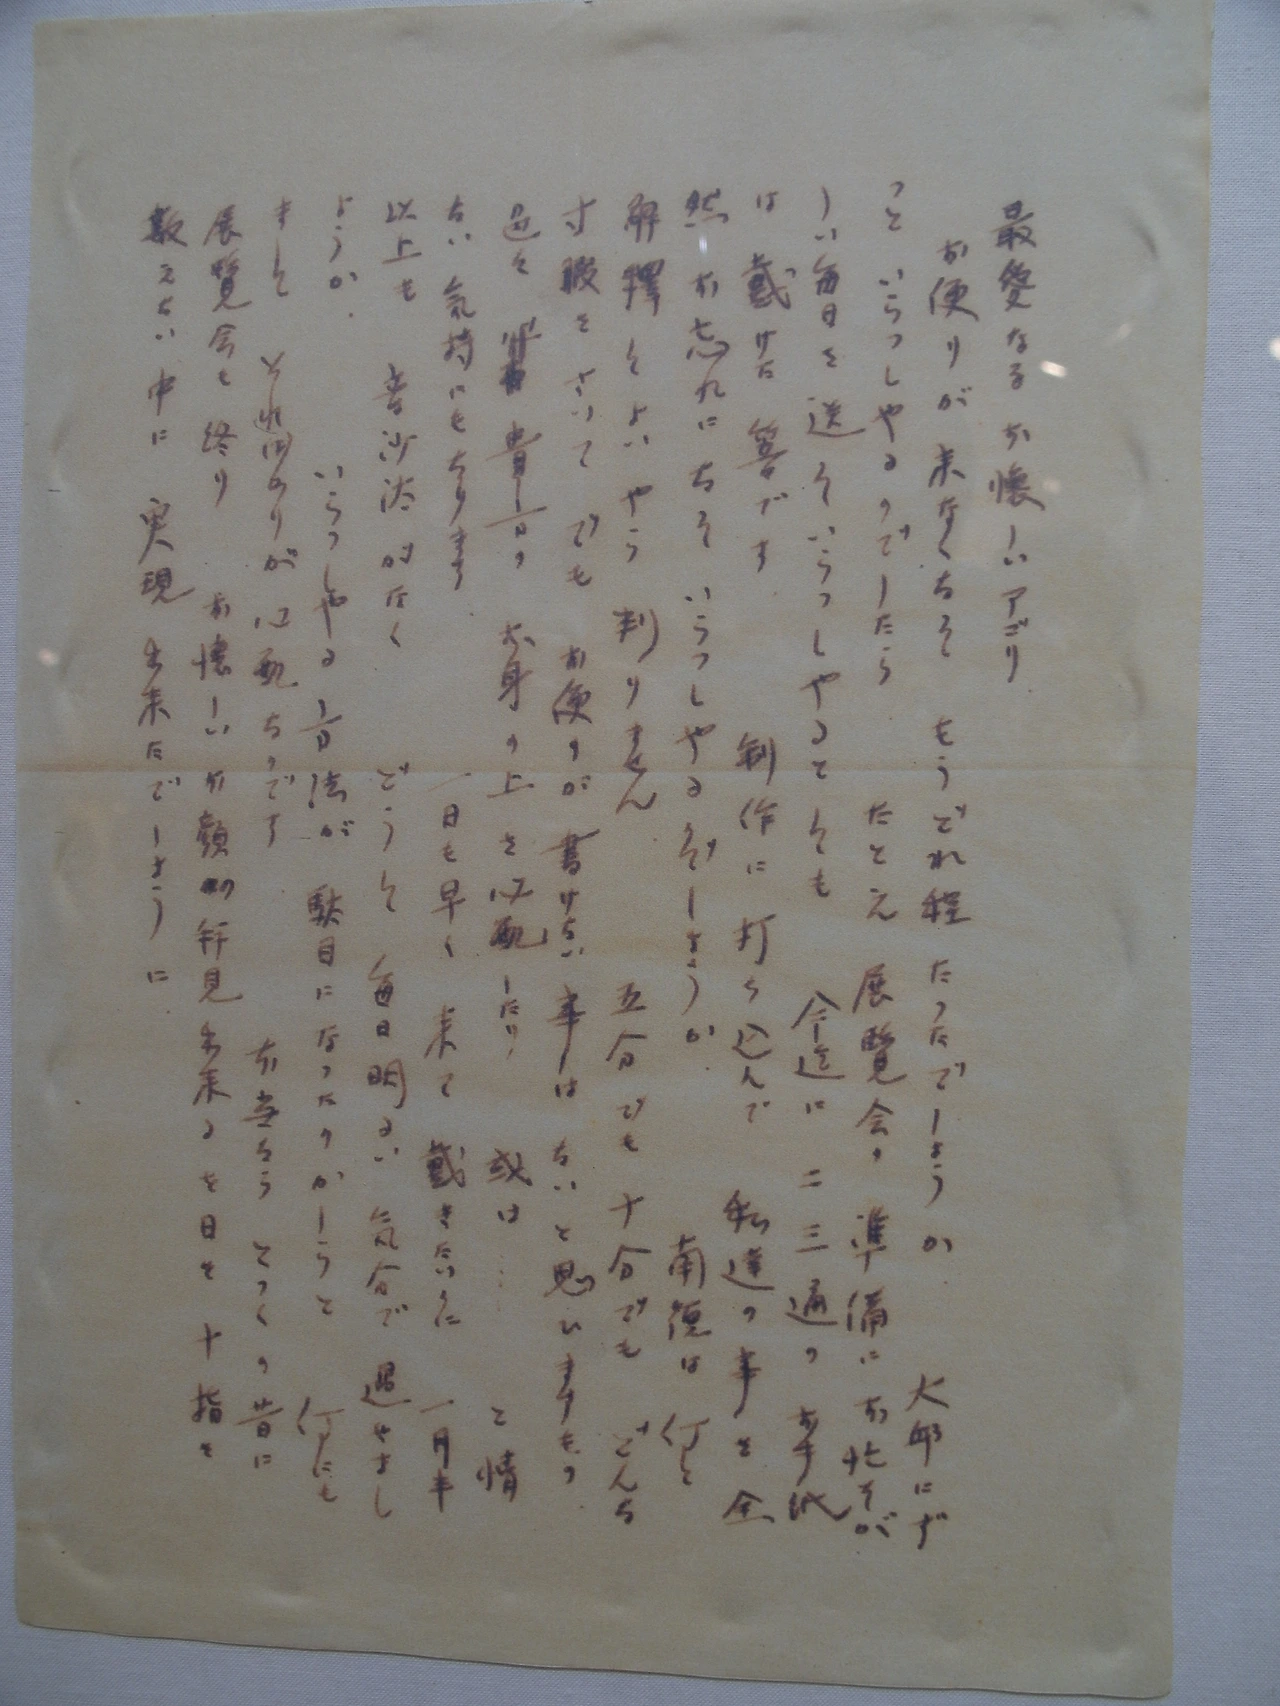 最愛なるお懐しいアゴリ
お便りが来なくなって もうどれ程たったでしょうか 大邱にず
っといらっしゃるのでしたら たとえ 展覧会の準備にお忙そが
しい毎日を送っていらっしゃるとしても 今迄に二三通のお手紙
は戴けた筈です 制作に打ち込んで 私達の事を全
然お忘れになっていらっしゃるでしょうか 南徳は何と
解釋してよいやら 判りません 五分でも十分でも どんな
寸暇をさいてでも お便りが書けない事はないと思いますもの
過去 貴方の お身の上を心配したり 或は… と情
ない気持にもなります 一日も早く来て戴きたいのに 一月半
以上も音沙汰がなく どうして毎日明るい気分で過せまし
ょうか。 いらっしゃる方法が駄目になったのかしらと 何にも
まして それのみが心配なのです 本当なら とっくの昔に
展覧会も終り お懐しいお顔 拝見出来る日を十指を
数えない中に 実現出来たでしょうに